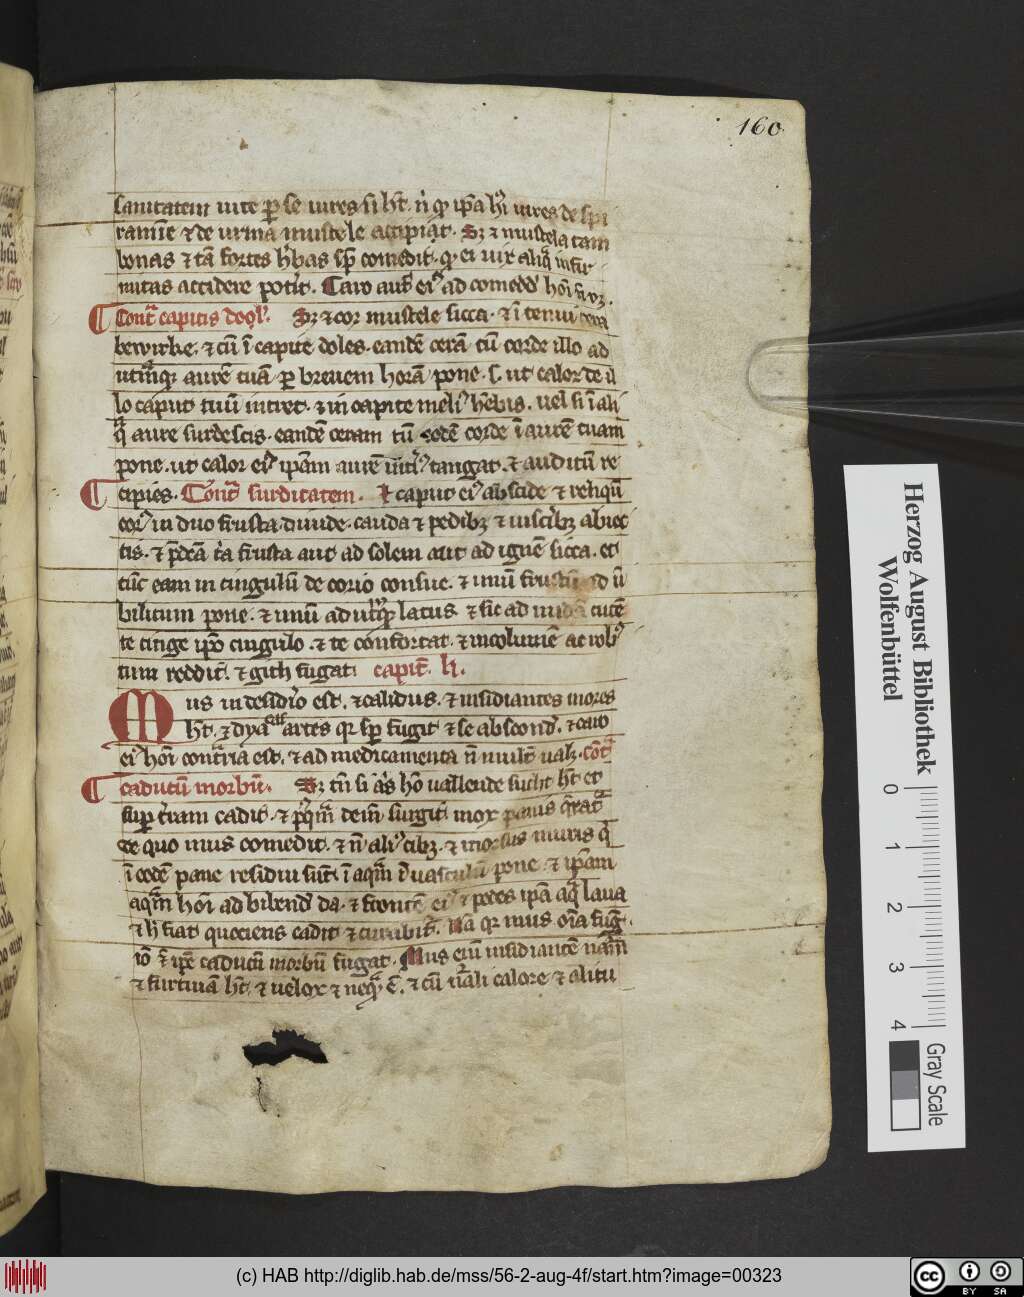 160
sanitatem uite p se uires si ht. n q ipa hi uires de spi
ramīe ⁊ de urina mustele accipiat. Sz ⁊ mustela tam
bonas ⁊ tā fortes hbas sp comedit. q ei uix aliq infir
mitas accidere potit. Caro aut ei ad comedd hoi
Cont capitis dool. Sz ⁊ cor mustele sicca. ⁊ ī tenui cera
bewirke. ⁊ cū ī capite doles. eandē cerā cū corde illo ad
utmq aurē tuā p breuem horā pone. s. ut calor de il
lo caput tuū intret. ⁊ in capite meli hebis. uel si ī ali
q aure surdescis. eandē ceram cū eodē corde ī aurē tuam
pone. ut calor ei ipam aurē tangat. ⁊ auditū re
cipies. Cont surditatem. Et caput ei abscide ⁊ reliqū
cor in duo frusta diuide. cauda ⁊ pedibz ⁊ uiscibz abiec
tis. ⁊ frusta aut ad solem aut ad ignē sicca. et
tūc eam in cingulū de corio consue. ⁊ unū frustū ad ū
bilicum pone. ⁊ unū ad utrq latus ⁊ sic ad nudā cutē
te cinge ipo cingulo. ⁊ te confortat. ⁊ incolumē ac rob
tum reddit. ⁊ gith fugat. capit. li.
Mus in desidio est. ⁊ calidus. ⁊ insidiantes mores
ht. ⁊ dya artes qr sp fugit ⁊ se abscond. ⁊ caro
ei hoi contria est. ⁊ ad medicamenta n mult ualz. cōt
caducū morbū. Sz tn si hō uallende sucht ht et
sup tram cadit. ⁊ dein surgit mox panis
de quo mus comedit. ⁊ n ali cibz. ⁊ morsus muris q
ī eodē pane residui sūt. ī aqm uasculū pone. ⁊ ipam
aqm hoi ad bibend da. ⁊ frontē ei ⁊ pedes ipa aq laua
⁊ h fiat quociens cadit ⁊ curabit. Nā qr mus oīa fug.
iō ⁊ ipe caducū morbū fugat. Mus eciā insidiantē nam
⁊ furtiuā ht. ⁊ uelox ⁊ neq ē. ⁊ cū ali calore ⁊ alitu
Herzog August Bibliothek
Wolfenbüttel
0 1 2 3 4
Gray Scale
(c) HAB http://diglib.hab.de/mss/56-2-aug-4f/start.htm?image=00323
cc BY SA